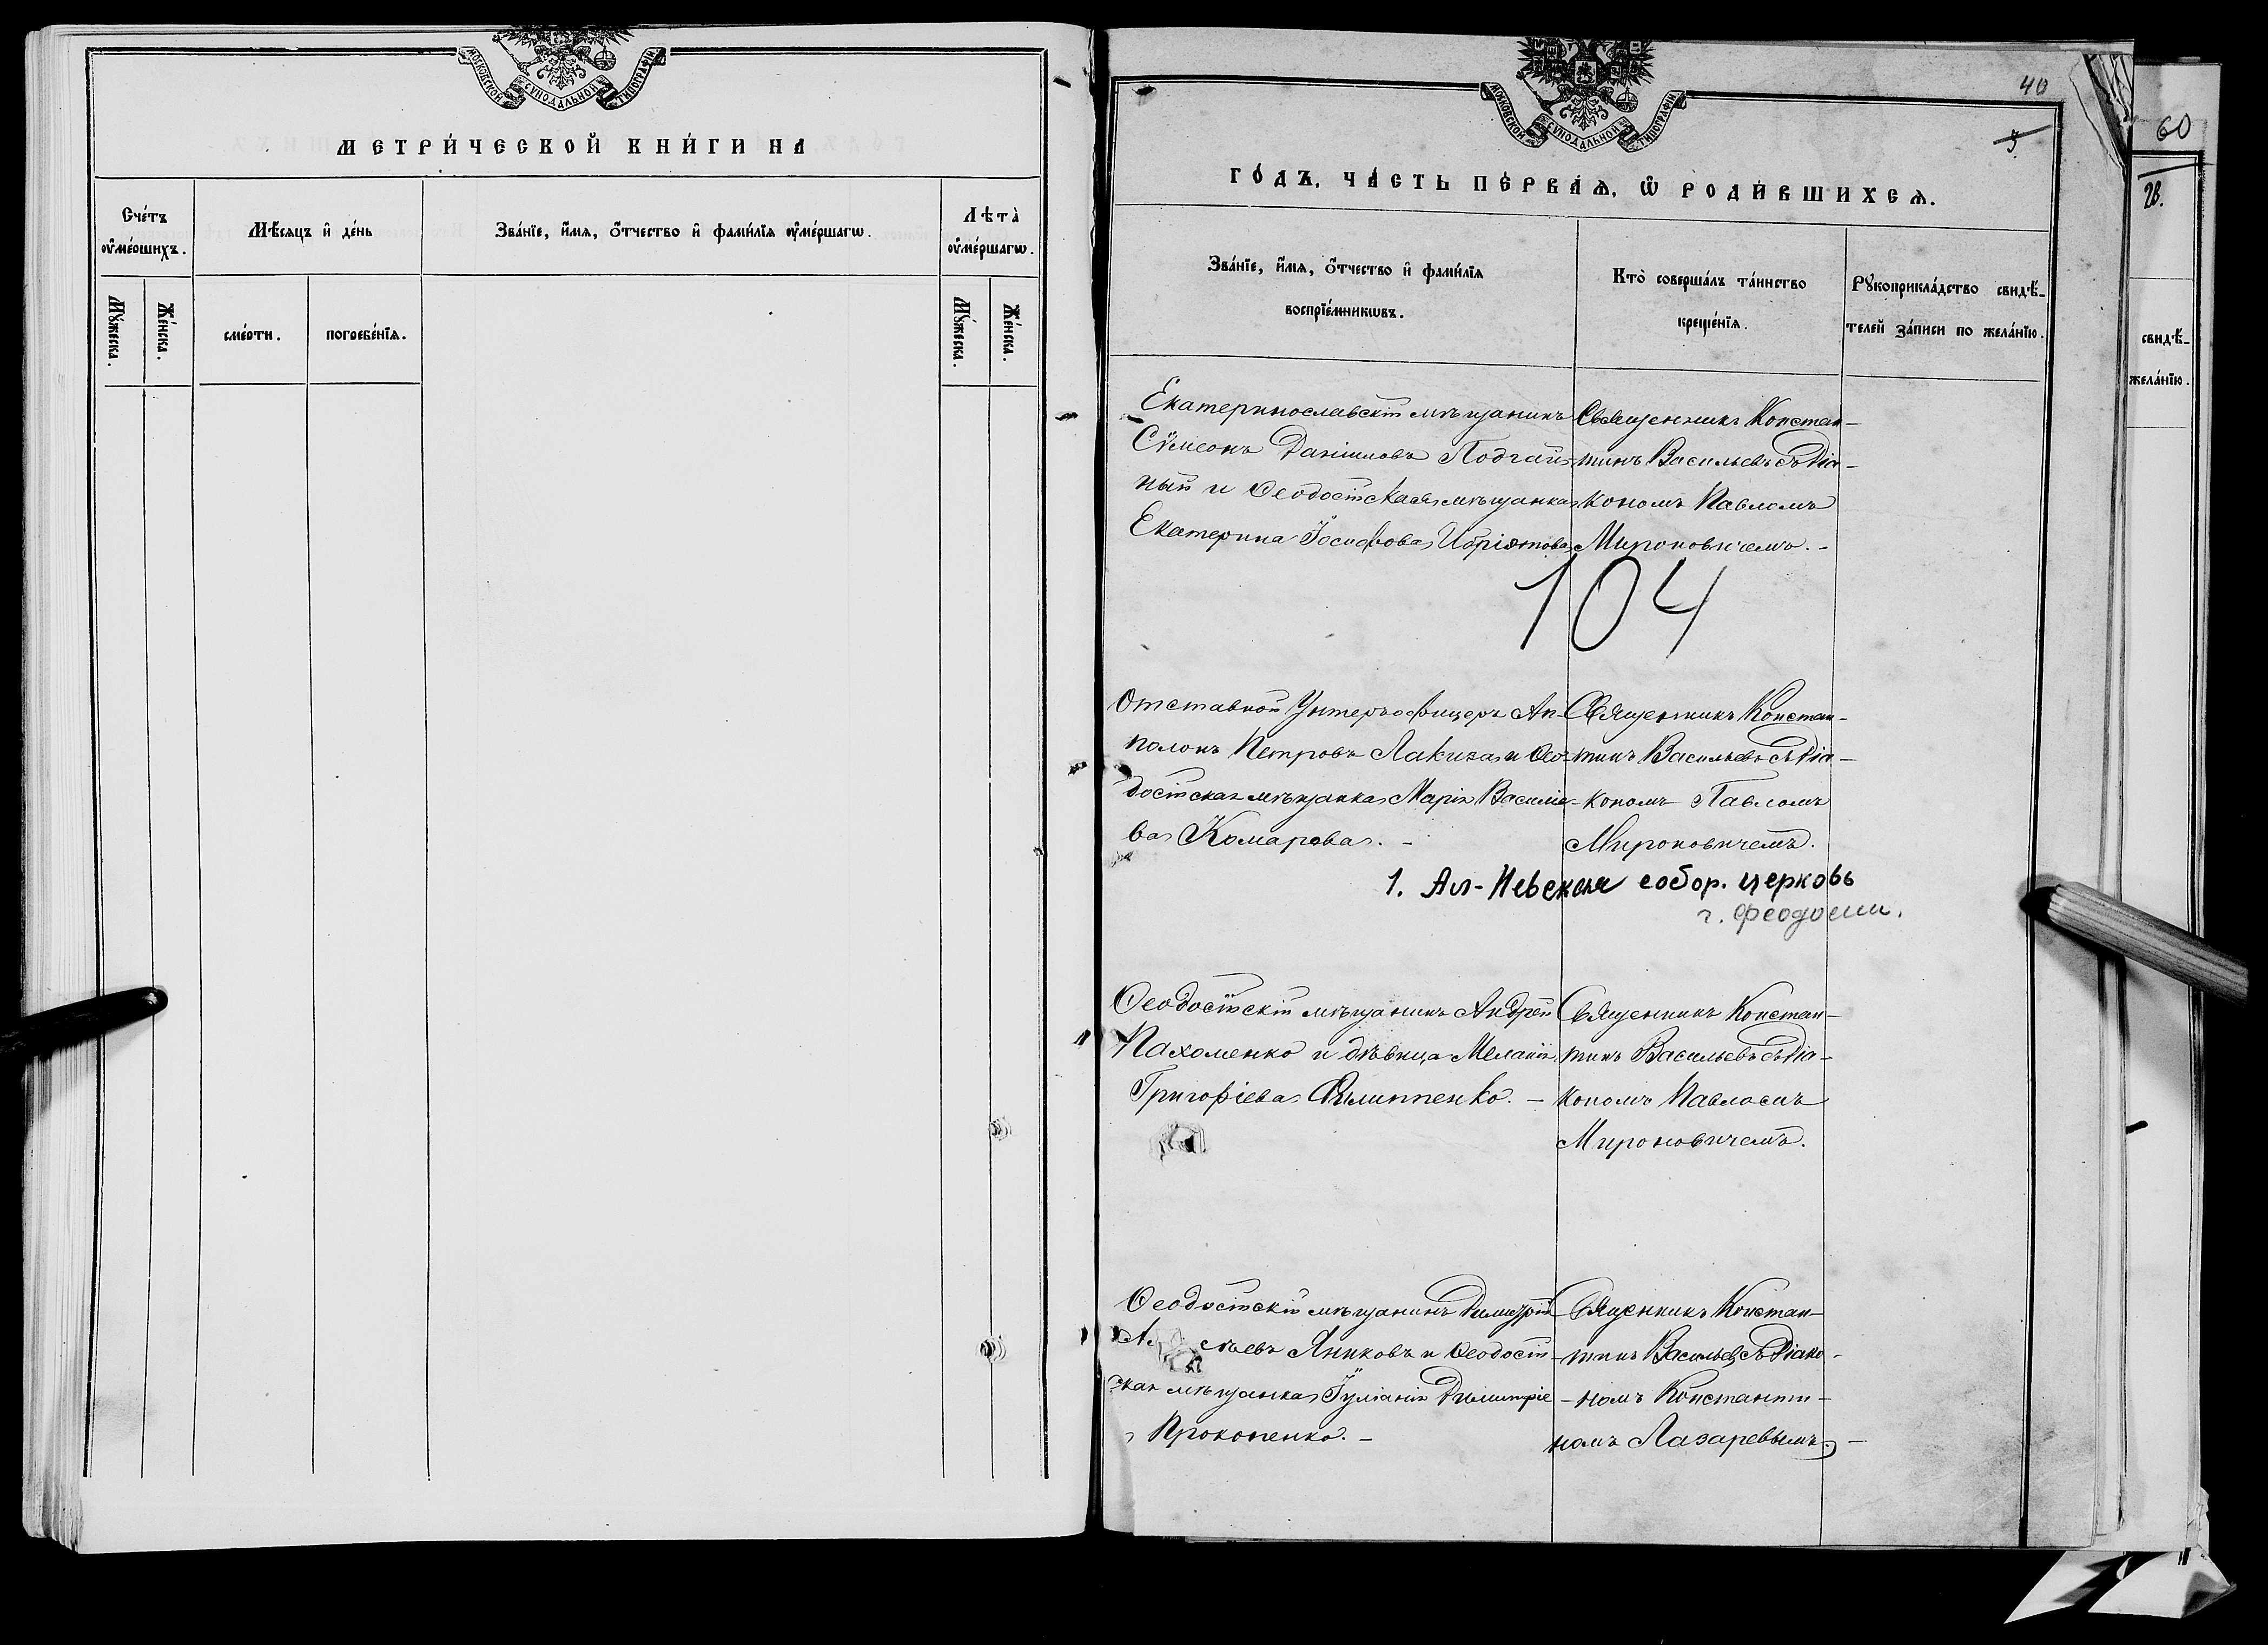 МОСКОВСКОЙ СѴНОДАЛЬНОЙ ТИПОГРАФІИ
МЕТРИ́ЧЕСКОЙ КНИ́ГИ НА
Сче́тъ ᲂу҆ме́ршихъ.
Мѣ́сѧцъ и҆ де́нь
Зва́нїе, и҆́мѧ, ѻ҆́тчество и҆ фами́лїѧ ᲂу҆ме́ршагѡ.
Лѣта̀ ᲂу҆ме́ршагѡ.
Мꙋ́жеска.
Же́нска.
сме́рти.
погребе́нїѧ.
Мꙋ́жеска.
Же́нска.
МОСКОВСКОЙ СѴНОДАЛЬНОЙ ТИПОГРАФІИ
40
ГО́ДЪ, ЧА́СТЬ ПЕ́РВАѦ, Ѡ҆ РОДИ́ВШИХСѦ.
Зва́нїе, и҆́мѧ, ѻ҆́тчество и҆ фами́лїѧ
воспрїе́мникѡвъ.
Кто̀ соверша́лъ та́инство
креще́нїѧ.
Рꙋкоприкла́дство свидѣ́-
телей за́писи по жела́нїю.
Екатеринославскій мѣщанинъ
Сѵмеонъ Даніиловъ Подгай-
ный и Ѳеодосійская мѣщанка
Екатерина Іосифова
Священникъ Констан-
тинъ Васильевъ съ Діа-
кономъ Павломъ
Мироновичемъ. -
104
Отставной Унтеръ-офицеръ Ап-
полонъ Петровъ Лакиза и Ѳео-
досійская мѣщанка Марія Василіе-
ва Комарова. -
Священникъ Констан-
тинъ Васильевъ съ Діа-
кономъ Павломъ
Мироновичемъ.
1. Ал-Невская собор. церковь
г. Феодосии.
Ѳеодосійскій мѣщанинъ Андрей
Пахоменко и дѣвица Меланія
Григоріева Филиппенко. -
Священникъ Констан-
тинъ Васильевъ съ Діа-
кономъ Павломъ
Мироновичемъ.
Ѳеодосійскій мѣщанинъ Димитрій
Яниковъ и Ѳеодосій-
ская мѣщанка Іуліанія Димитріе
Прокопенко. -
Священникъ Констан-
тинъ Васильевъ съ Діако-
номъ Константи-
номъ Лазаревымъ. -
60
свидѣ́-
жела́нїю.